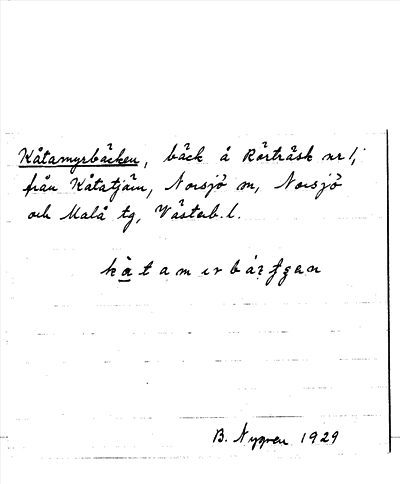 Kåtamyrbäcken, bäck å Rörträsk nr 1,
från Kåtatjärn, Norsjö sn, Norsjö
och Malå tg, Västerb. l.
B. Nygren 1929